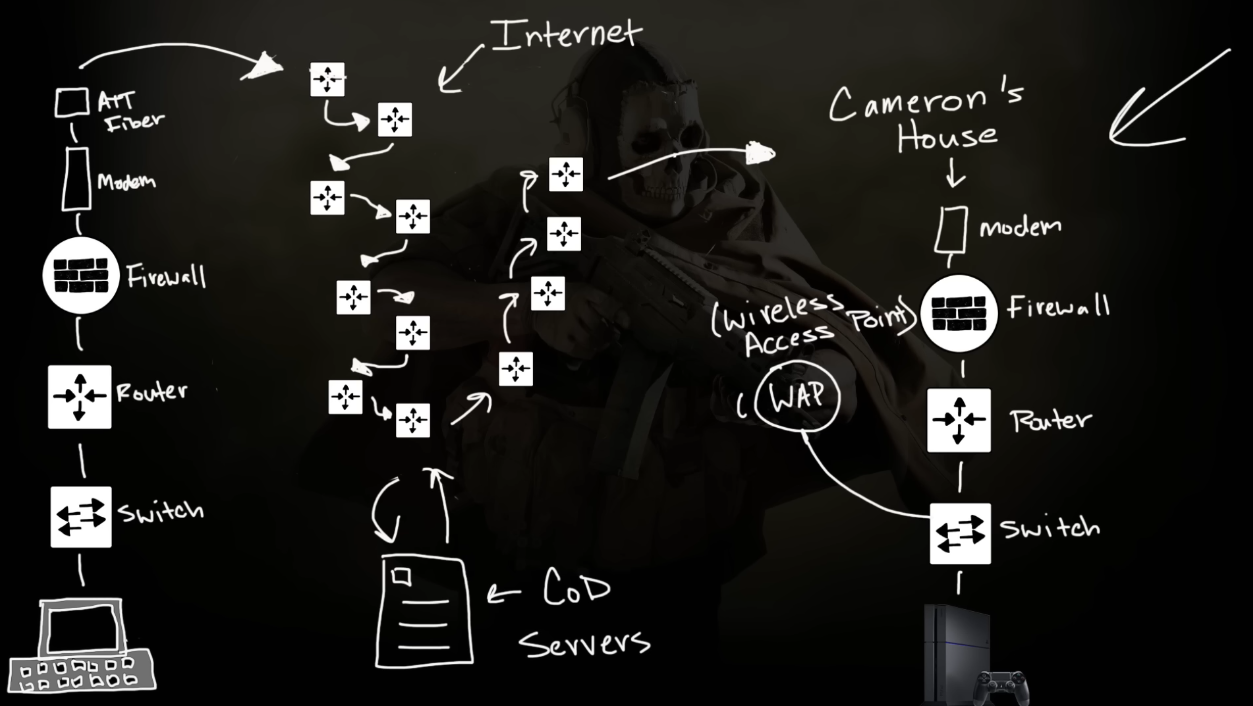 Internet
ATT
Fiber
Modem
Firewall
Router
Switch
CoD
Servers
Cameron's
House
modem
(Wireless
Access Point)
Firewall
WAP
Router
Switch